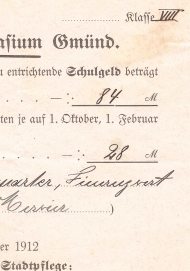 Klasse VIII
asium Gmünd.
u entrichtende Schulgeld beträgt
. . . . —: 84 M
ten je auf 1. Oktober, 1. Februar
. . . . —: 28 M
)
er 1912
Stadtpflege: